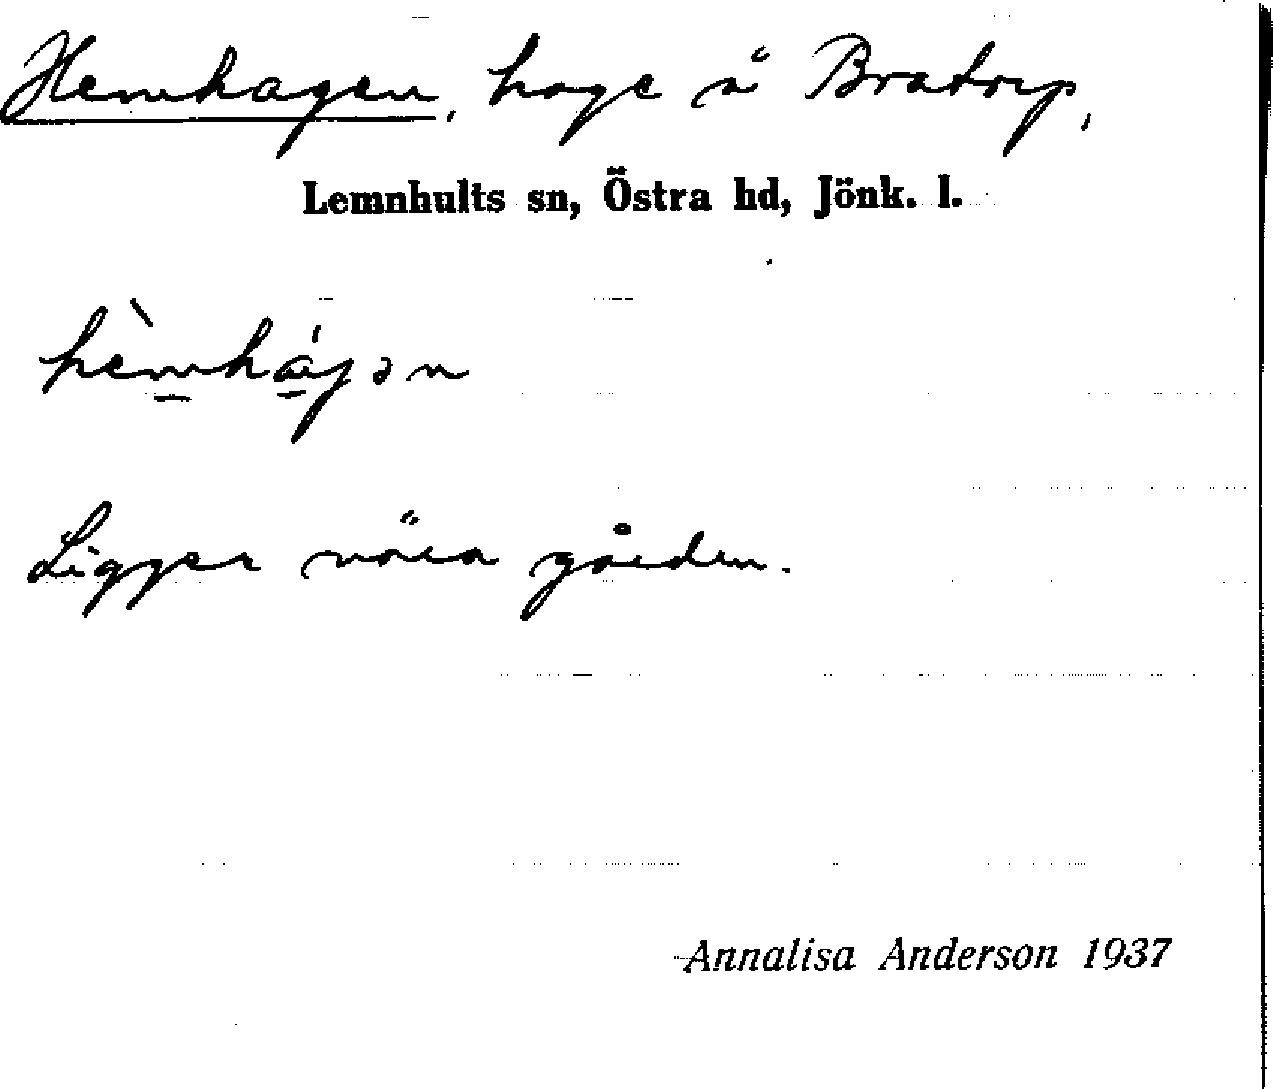 Hemhagen, hage å Bratorp,
Lemnhults sn, Östra hd, Jönk. l.
hèmhágən
Ligger nära gården.
Annalisa Anderson 1937